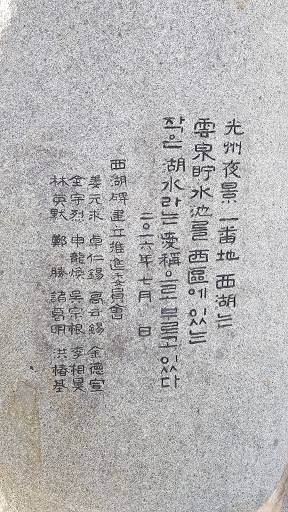 光州夜景 一番地 西湖는
雲泉貯水池를 西區에 있는
작은 湖水라는 愛稱으로 부르고 있다
二〇一六年 七月 日
西湖碑建立推進委員會
姜元求 卓仁錫 高云錫 金德宣
金宇烈 申龍焌 吳宗根 李相昊
林英默 鄭 勝 諸昌明 洪椿基